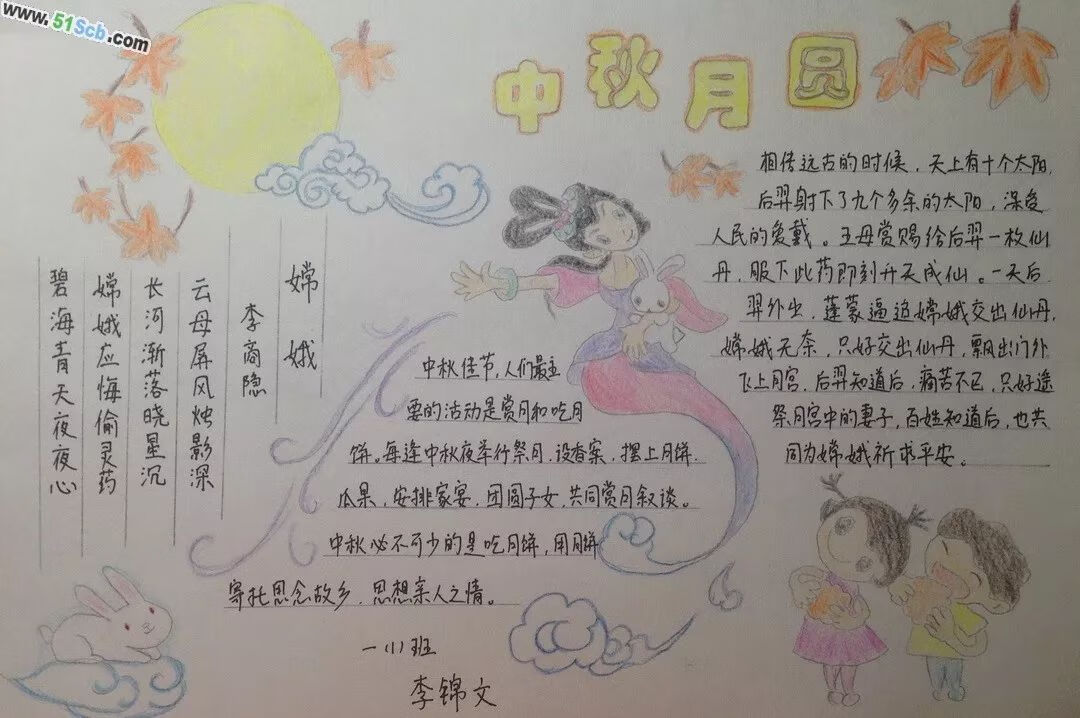 www.51Scb.com
中秋月圆
嫦娥
李商隐
云母屏风烛影深
长河渐落晓星沉
嫦娥应悔偷灵药
碧海青天夜夜心
中秋佳节,人们最主
要的活动是赏月和吃月
饼。每逢中秋夜举行祭月,设香案,摆上月饼.
瓜果,安排家宴,团圆子女,共同赏月叙谈。
中秋必不可少的是吃月饼,用月饼
寄托思念故乡,思想亲人之情。
相传远古的时候,天上有十个太阳,
后羿射下了九个多余的太阳,深受
人民的爱戴。王母赏赐给后羿一枚仙
丹,服下此药即刻升天成仙。一天后
羿外出,蓬蒙逼迫嫦娥交出仙丹,
嫦娥无奈,只好交出仙丹,飘出门外
飞上月宫,后羿知道后,痛苦不已,只好遥
祭月宫中的妻子,百姓知道后,也共
同为嫦娥祈求平安。
一(1)班
李锦文